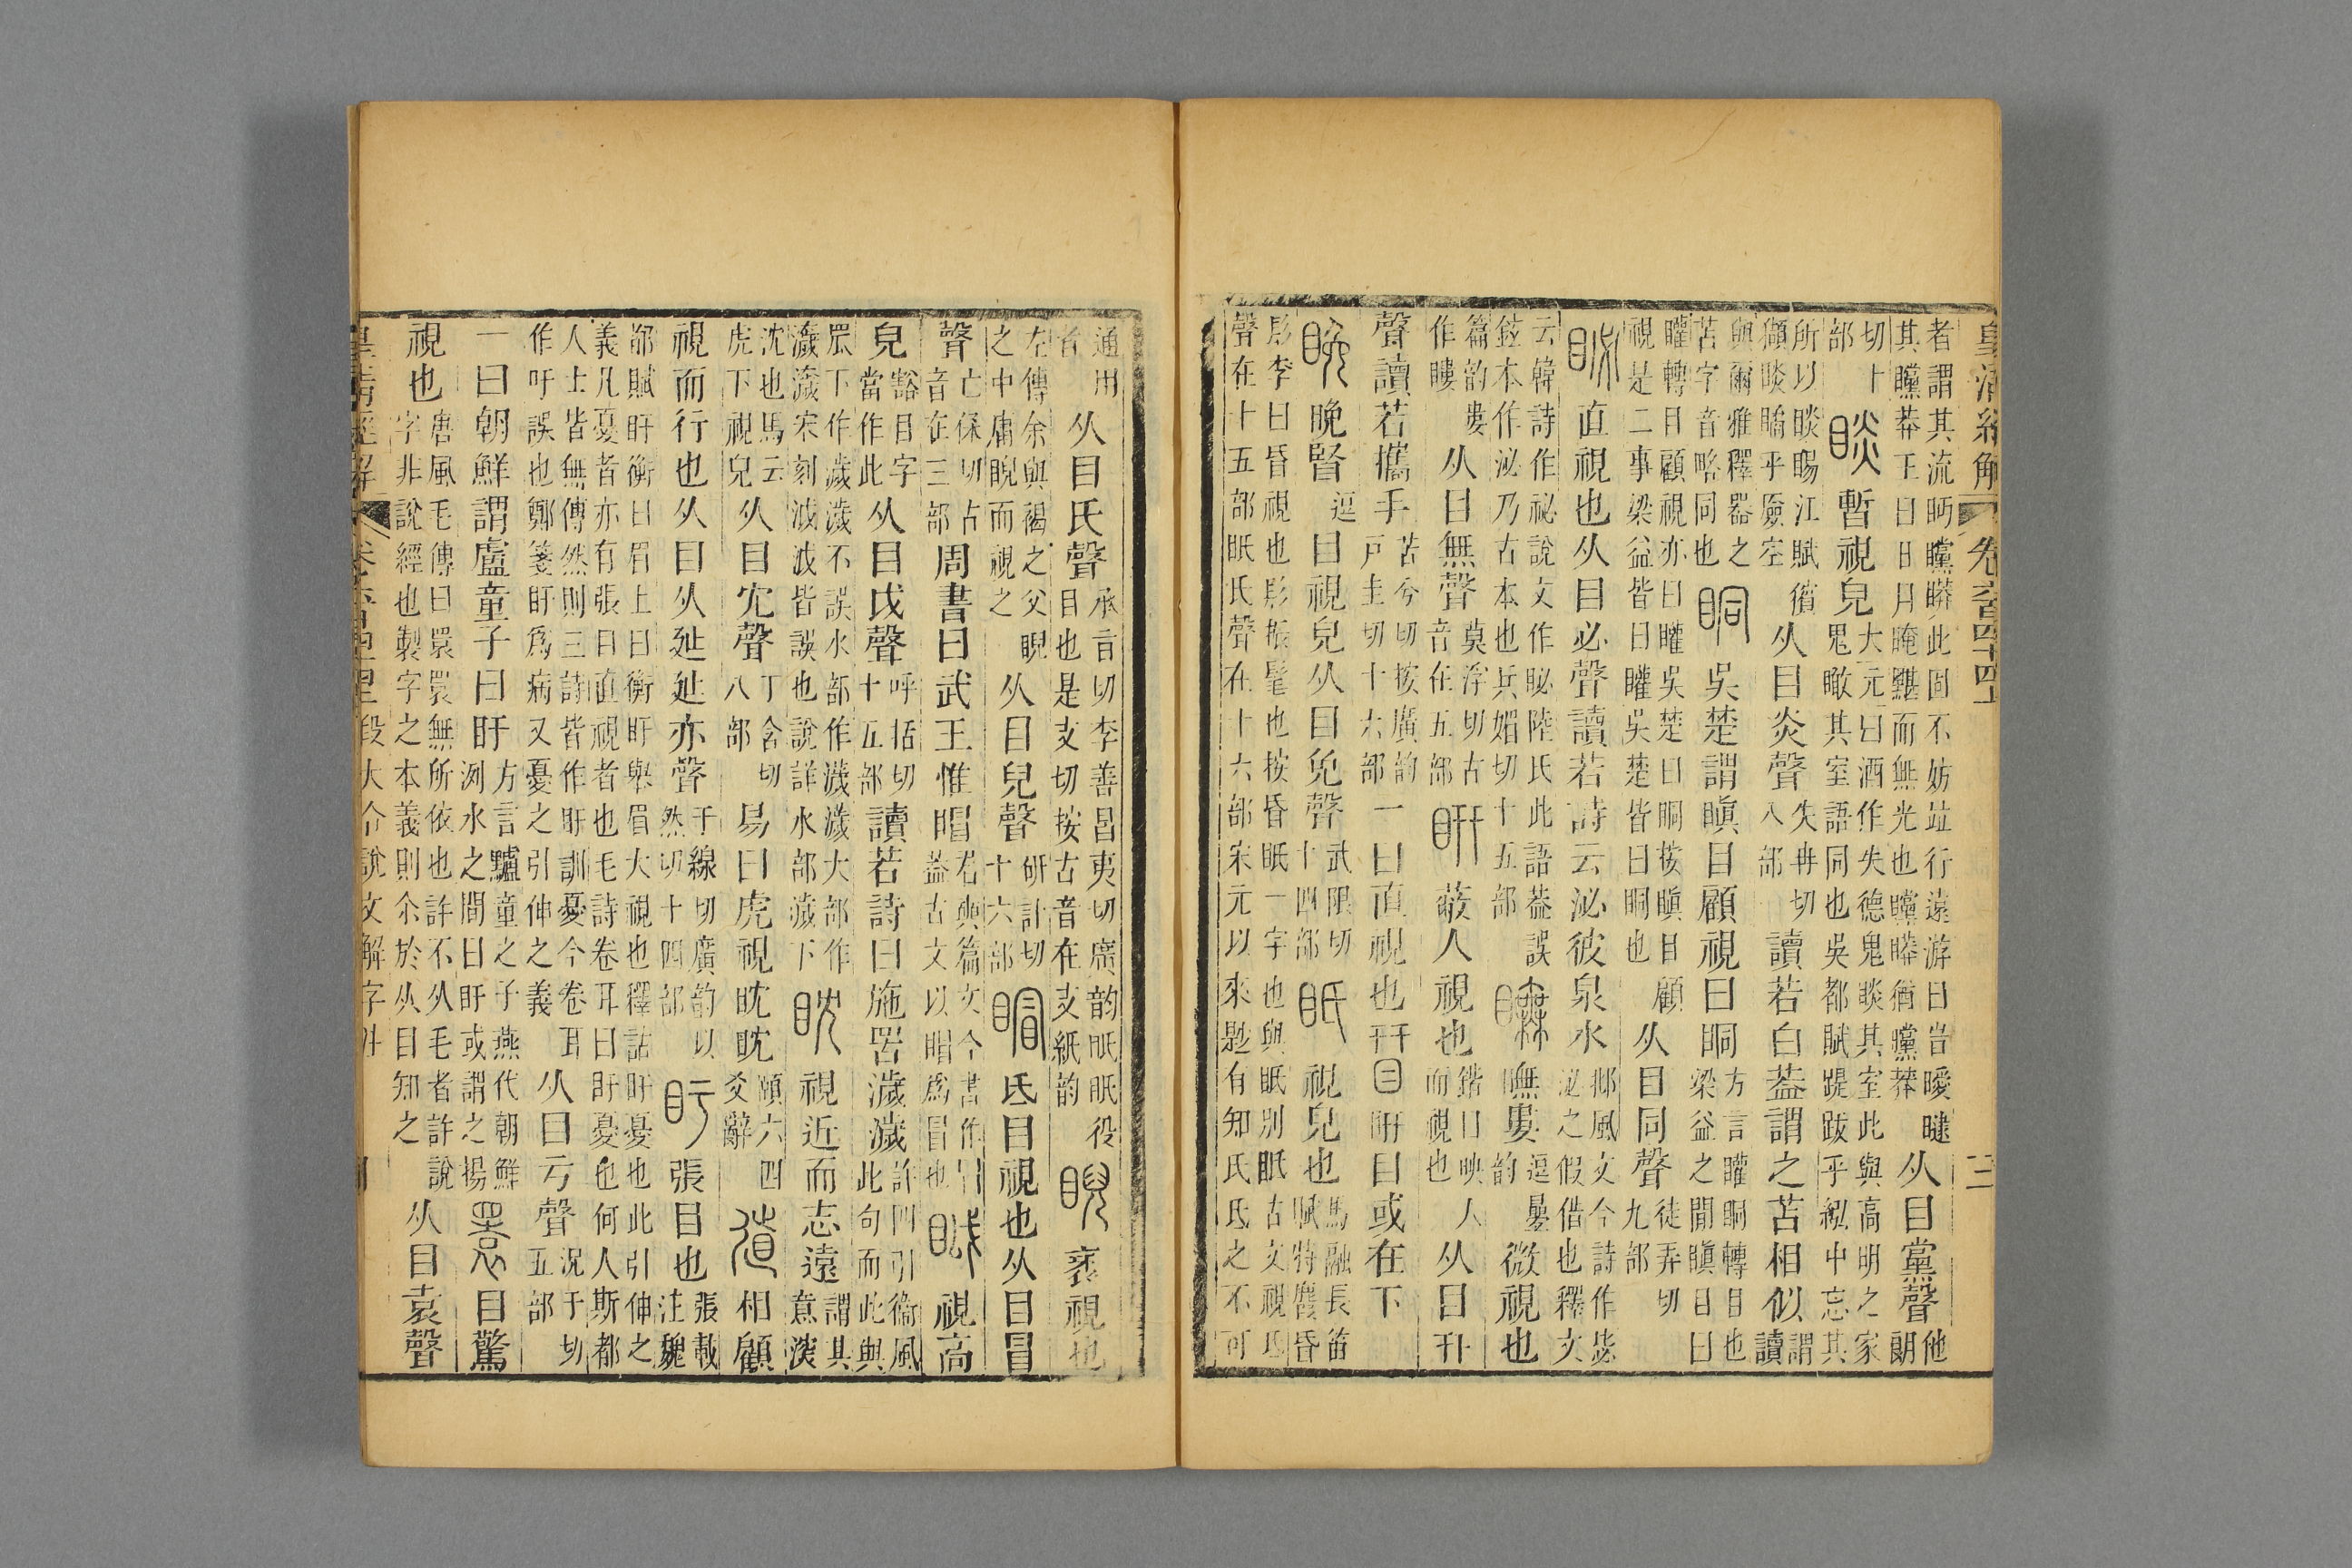 皇清經解 卷六百四十四上 三
者謂其流眄矘䁳此固不妨竝行遠游曰旹曖曃
其矘莽王曰日月晻黮而無光也矘䁳猶矘莽
从目黨聲
他
朗
切十
部
睒 暫視皃
大元曰酒作失德鬼睒其室此與高明之家
鬼瞰其室語同也吳都賦䟾跋乎紭中忘其
所以睒睗江賦獱
獺睒瞲乎厱空
从目炎聲
失冉切
八部
讀若白葢謂之苫相似
謂
讀
與爾雅釋器之
苫字音略同也
眮 吳楚謂瞋目顧視曰眮
方言矔眮轉目也
梁益之閒瞋目曰
矔轉目顧視亦曰矔吳楚曰眮按瞋目顧
視是二事梁益皆曰矔吳楚皆曰眮也
从目同聲
徒弄切
九部
䀣 直視也从目必聲讀若詩云泌彼泉水
邶風文今詩作毖
泌之假借也釋文
云韓詩作祕說文作䀣陸氏此語葢誤
鉉本作泌乃古本也兵媚切十五部
瞴 瞴婁
逗婁
韵
微視也
篇韵婁
作瞜
从目無聲
莫浮切古
音在五部
䀘 蔽人視也
鍇曰映人
而視也
从目幵
聲讀若攜手
苦兮切按廣韵
戶圭切十六部
一曰直視也 䀘目或在下
晚 晚賢
逗
目視皃从目免聲
武限切
十四部
眂 視皃也
馬融長笛
賦特麚昏
髟李曰昏視也髟振髦也按昏眂一字也與眂別眂古文視氐
聲在十五部眂氏聲在十六部宋元以來尟有知氏氐之不可
通用
者
从目氏聲
承旨切李善昌夷切廣韵眂眂役
目也是支切按古音在支紙韵
睨 衺視也
左傳余與褐之父睨
之中庸睨而視之
从目兒聲
研計切
十六部
䀤 氐目視也从目冒
聲
亡保切古
音在三部
周書曰武王惟䀤
君奭篇文今書作冒
葢古文以䀤爲冒也
眓 視高
皃
豁目字
當作此
从目戉聲
呼括切
十五部
讀若詩曰施罛濊濊
許凡引衞風
此句而此與
罛下作濊濊不誤水部作濊濊大部作
濊濊宋刻泧泧皆誤也說詳水部濊下
眈 視近而志遠
謂其
意深
沈也馬云
虎下視皃
从目冘聲
丁含切
八部
易曰虎視眈眈
頤六四
爻辭
相顧
視而行也从目从㢟㢟亦聲
于線切廣韵以
然切十四部
盱 張目也
張載
注魏
都賦盱衡曰眉上曰衡盱舉眉大視也釋詁盱憂也此引伸之
義凡憂者亦有張目直視者也毛詩卷耳曰盱憂也何人斯都
人士皆無傳然則三詩皆作盱訓憂今卷耳
作吁誤也鄭箋盱爲病又憂之引伸之義
从目亏聲
況于切
五部
一曰朝鮮謂盧童子曰盱
方言驢童之子燕代朝鮮
洌水之間曰盱或謂之揚
睘 目驚
視也
唐風毛傳曰睘睘無所依也許不从毛者許說
字非說經也製字之本義則尒於从目知之
从目袁聲
皇清經解 段大令說文解字注